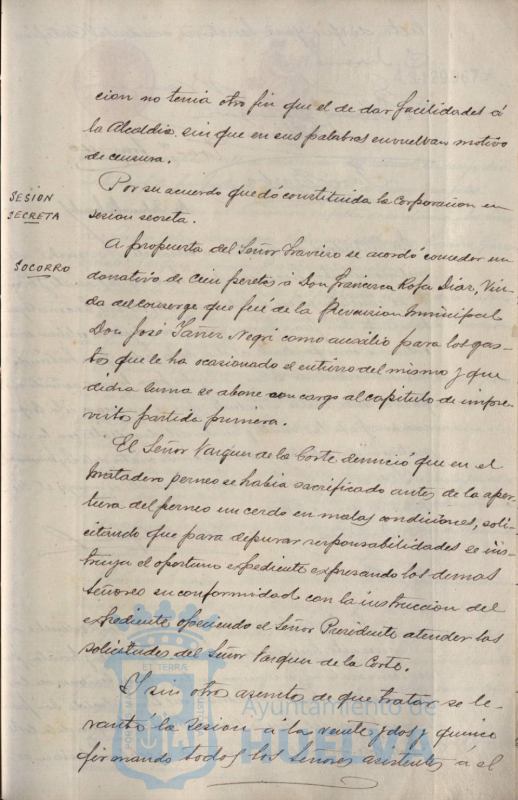 cion no tenia otro fin que el de dar facilidades á
la Alcaldia sin que en sus palabras envuelvan motivo
de censura.
SESION
SECRETA
Por su acuerdo quedó constituida la Corporacion en
sesion secreta.
SOCORRO
A propuesta del Señor Traviero se acordó conceder un
donativo de cien pesetas á Doña Francisca Rofa Diaz, Viu-
da del conserge que fué de la Prevension municipal
Don José Yañez Negri como auxilio para los gas-
tos que le ha ocasionado el entierro del mismo y que
dicha suma se abone con cargo al capitulo de impre-
vistos partida primera.
El Señor Vazquez de la Corte denunció que en el
matadero porneo se habia sacrificado antes de la aper-
tura del porneo un cerdo en malas condiciones, soli-
citando que para depurar responsabilidades se ins-
truya el oportuno expediente expresando los demas
Señores su conformidad con la instruccion del
expediente ofreciendo el Señor Presidente atender las
solicitudes del Señor Vazquez de la Corte.
Y sin otro asunto de que tratar se le-
vantó la sesion á la veinte y dos y quince
firmando todos los Señores asistentes á el
Ayuntamiento de
HUELVA